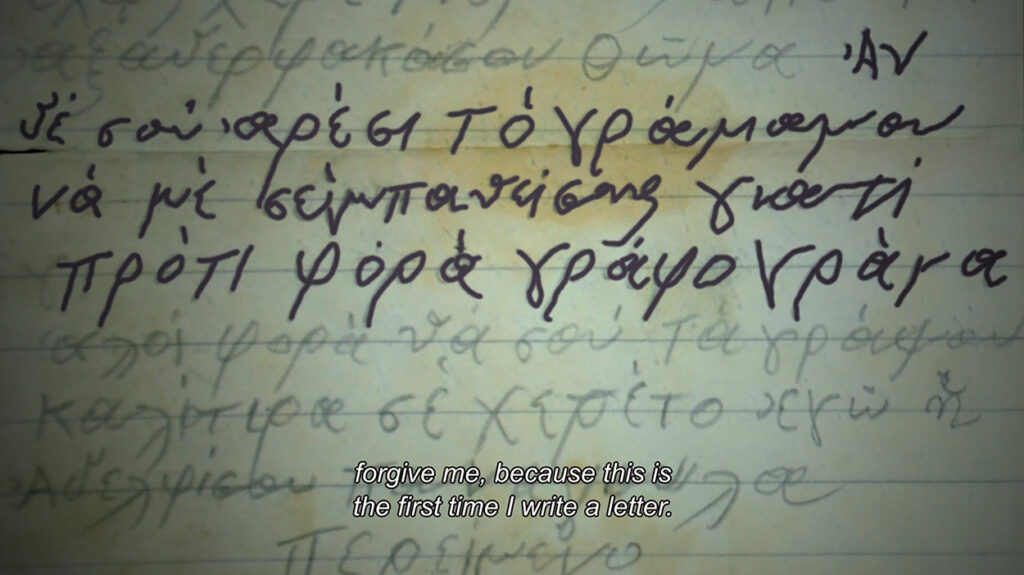 ἀξαδερφακόσου Θῶμα Ἀν
δέ σού ἀρέσι τό γράμαμου
νά μέ σείμπαθείσης γιατί
πρότι φόρά γράφο γράμα
ἀλοί φορά θά σού τά γράψου
καλίτιρα σέ χερέτο ἐγῶ ἥ
Ἀδελφίσου
περειμένο
forgive me, because this is
the first time I write a letter.